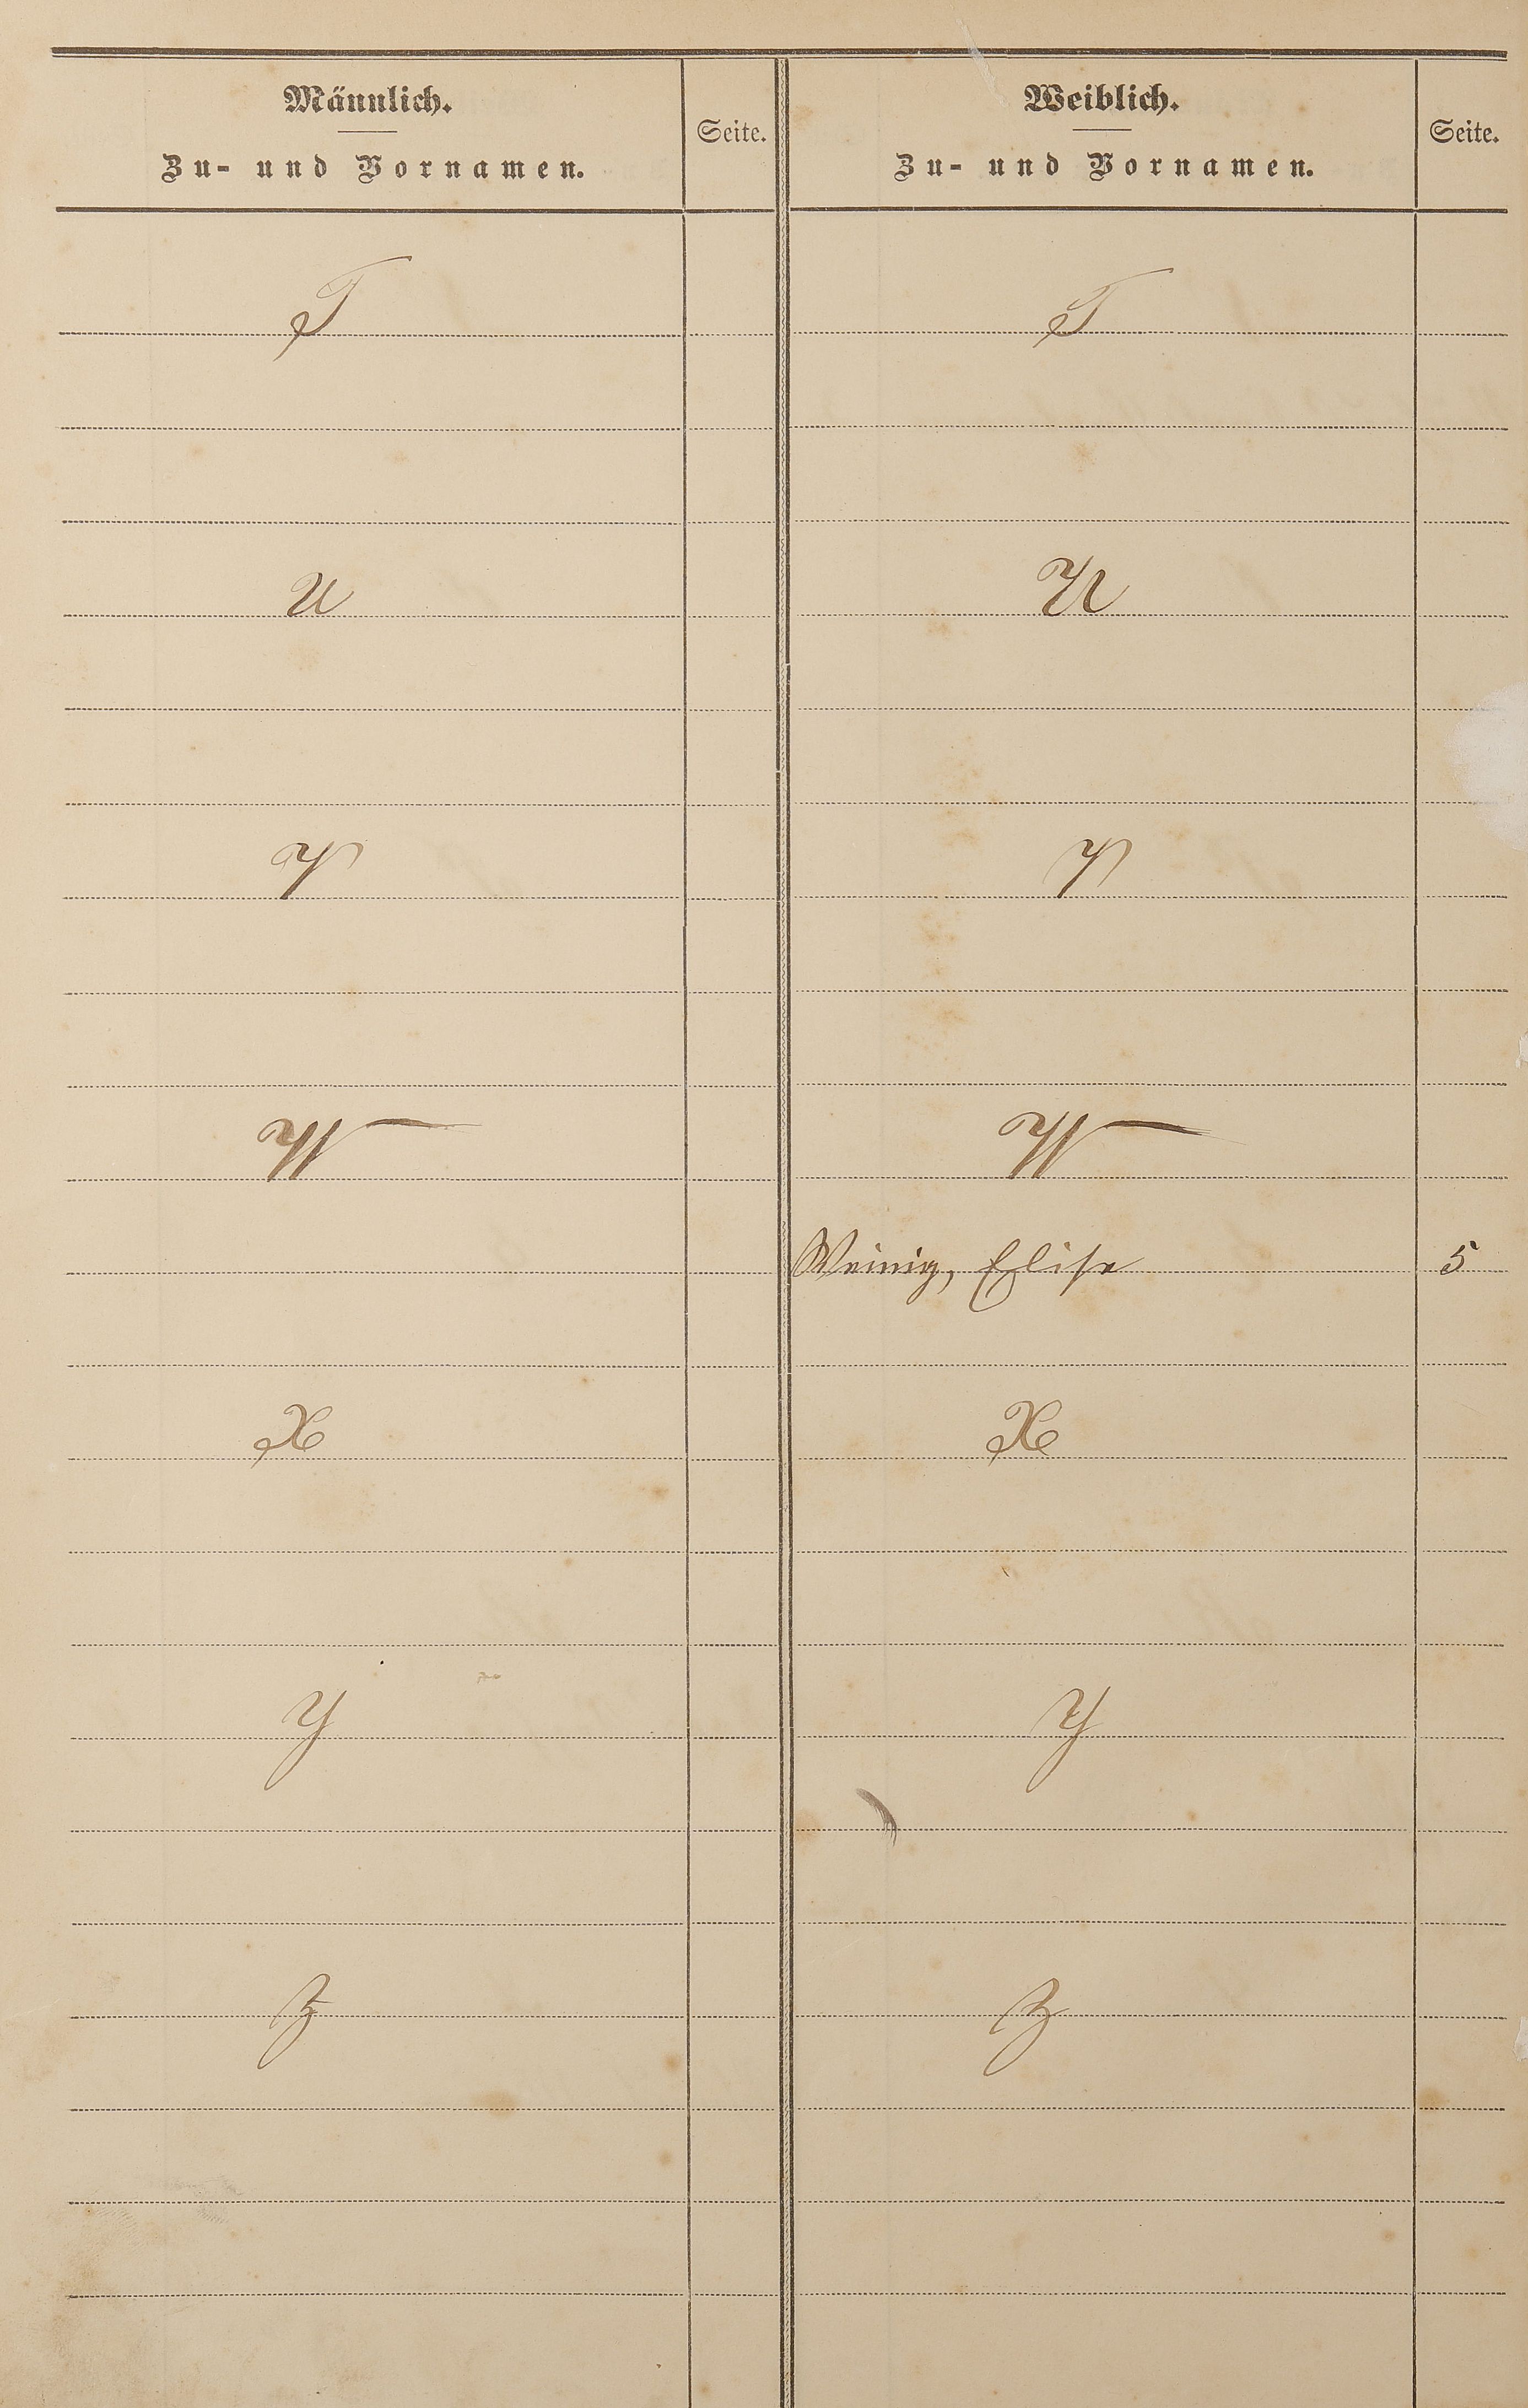 Männlich.
Zu- und Vornamen.
Seite.
Weiblich.
Zu- und Vornamen.
Seite.
T T
U U
V V
W W
Weinig, Elise 5
X X
Y Y
Z Z